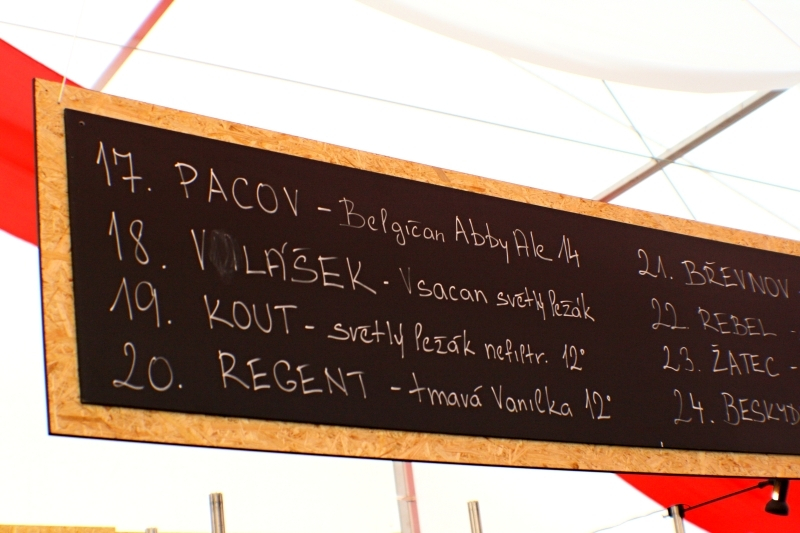 17. PACOV - Belgičan Abby Ale 14
18. VALÁŠEK - Vsacan světlý ležák
19. KOUT - světlý ležák nefiltr. 12°
20. REGENT - tmavá Vanilka 12°
21. BŘEVNOV
22. REBEL -
23. ŽATEC -
24. BESKYD